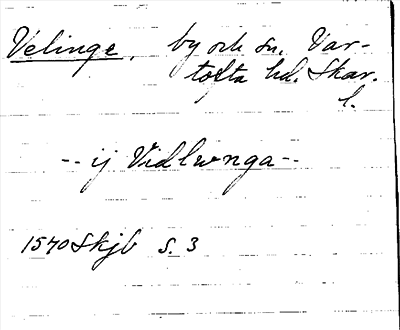 Velinge, by och sn. Var-
tofta hd. Skar.
l.
-- ij Vidlunga --
1540 Skjb s. 3